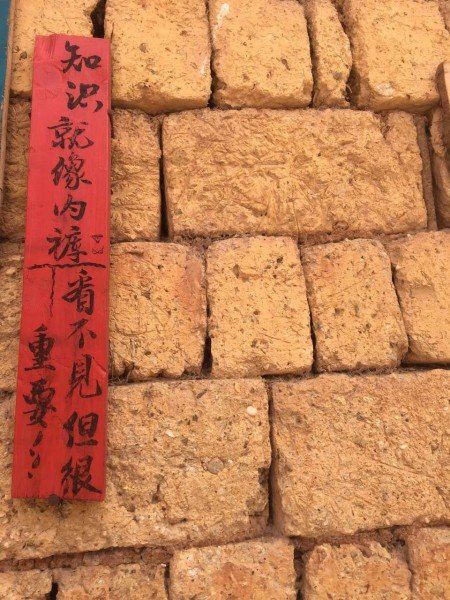 知识就像内裤看不见但很
重要！！